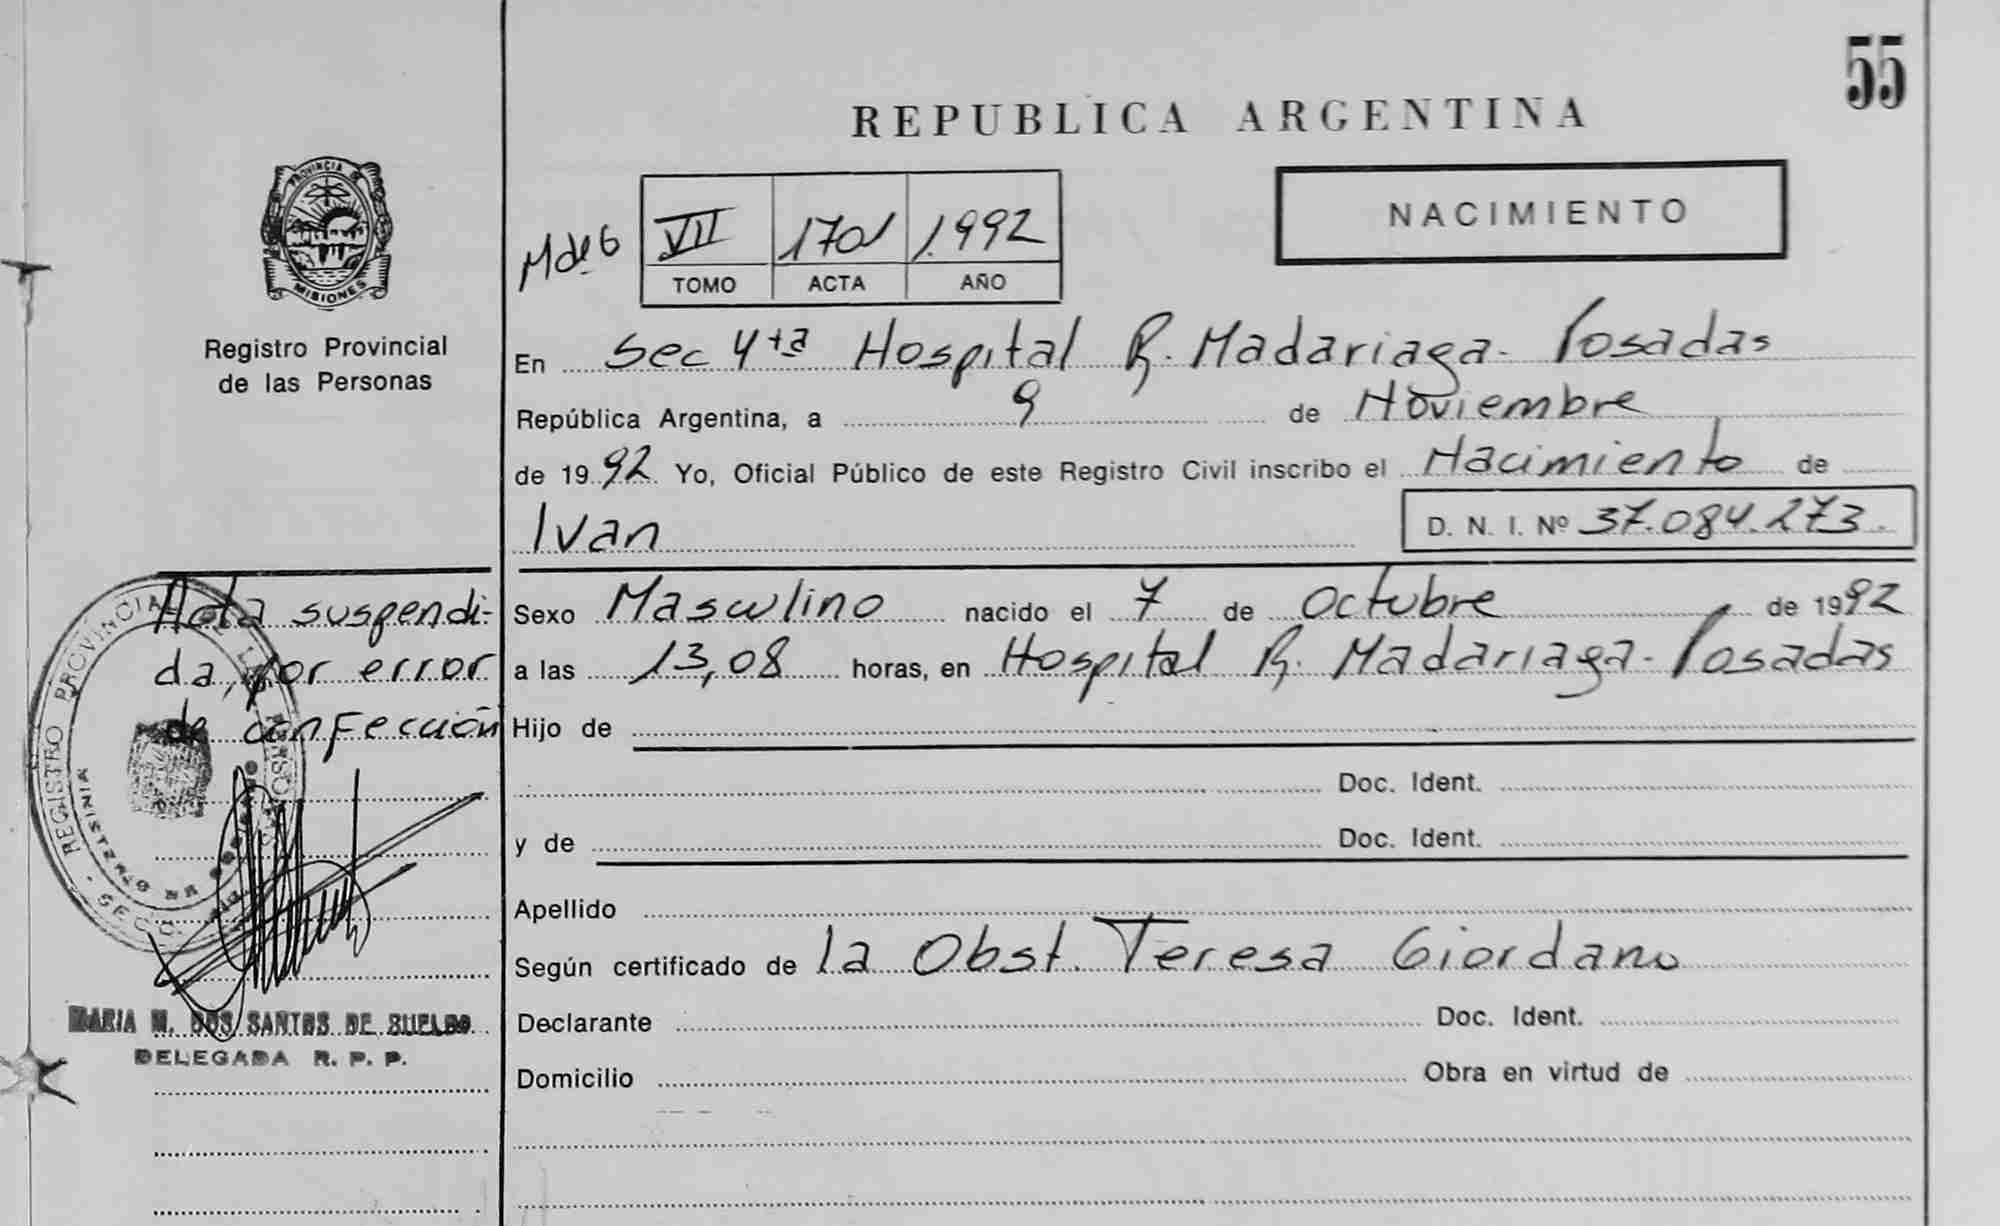 55
REPUBLICA ARGENTINA
NACIMIENTO
PROVINCIA DE
MISIONES
Registro Provincial
de las Personas
M de 6
VII 1701 1992
TOMO ACTA AÑO
En Sec 4ta Hospital R. Madariaga - Posadas
República Argentina, a 9 de Noviembre
de 1992 Yo, Oficial Público de este Registro Civil inscribo el Nacimiento de
Ivan
D. N. I. Nº 37.084.273.
Sexo Masculino nacido el 7 de Octubre de 1992
a las 13,08 horas, en Hospital R. Madariaga - Posadas
Hijo de
Doc. Ident.
y de Doc. Ident.
Apellido
Según certificado de la Obst. Teresa Giordano
Declarante Doc. Ident.
Domicilio Obra en virtud de
Acta suspendi-
da, por error
de confección
REGISTRO PROVINCIAL DE LAS PERSONAS
MARIA M. DOS SANTOS DE SUELDO
DELEGADA R. P. P.